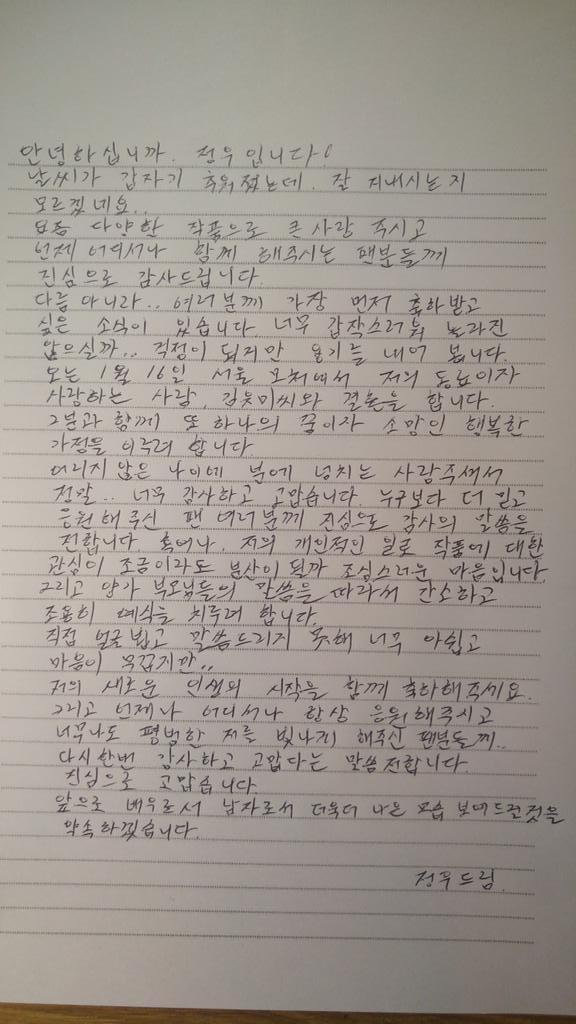 안녕하십니까. 정우입니다!
날씨가 갑자기 추워졌는데. 잘 지내시는지
모르겠네요..
요즘 다양한 작품으로 큰 사랑 주시고
언제 어디서나 함께 해주시는 팬분들께
진심으로 감사드립니다.
다름 아니라.. 여러분께 가장 먼저 축하받고
싶은 소식이 있습니다. 너무 갑작스러워 놀라진
않으실까.. 걱정이 되지만 용기를 내어 봅니다.
오는 1월 16일 서울 모처에서 저의 동료이자
사랑하는 사람 김유미씨와 결혼을 합니다.
그분과 함께 또 하나의 꿈이자 소망인 행복한
가정을 이루려 합니다.
어리지 않은 나이에 분에 넘치는 사랑주셔서
정말.. 너무 감사하고 고맙습니다. 누구보다 더 믿고
응원해 주신 팬 여러분께 진심으로 감사의 말씀을
전합니다. 혹여나. 저의 개인적인 일로 작품에 대한
관심이 조금이라도 분산이 될까 조심스러운 마음입니다.
그리고 양가 부모님들의 말씀을 따라서 간소하고
조용히 예식을 치루려 합니다.
직접 얼굴 뵙고 말씀드리지 못해 너무 아쉽고
마음이 무겁지만..
저의 새로운 인생의 시작을 함께 축하해주세요.
그리고 언제나 어디서나 항상 응원해주시고
너무나도 평범한 저를 빛나게 해주신 팬분들께..
다시한번 감사하고 고맙다는 말씀 전합니다.
진심으로 고맙습니다.
앞으로 배우로서 남자로서 더욱더 나은 모습 보여드릴것을
약속하겠습니다.
정우드림.